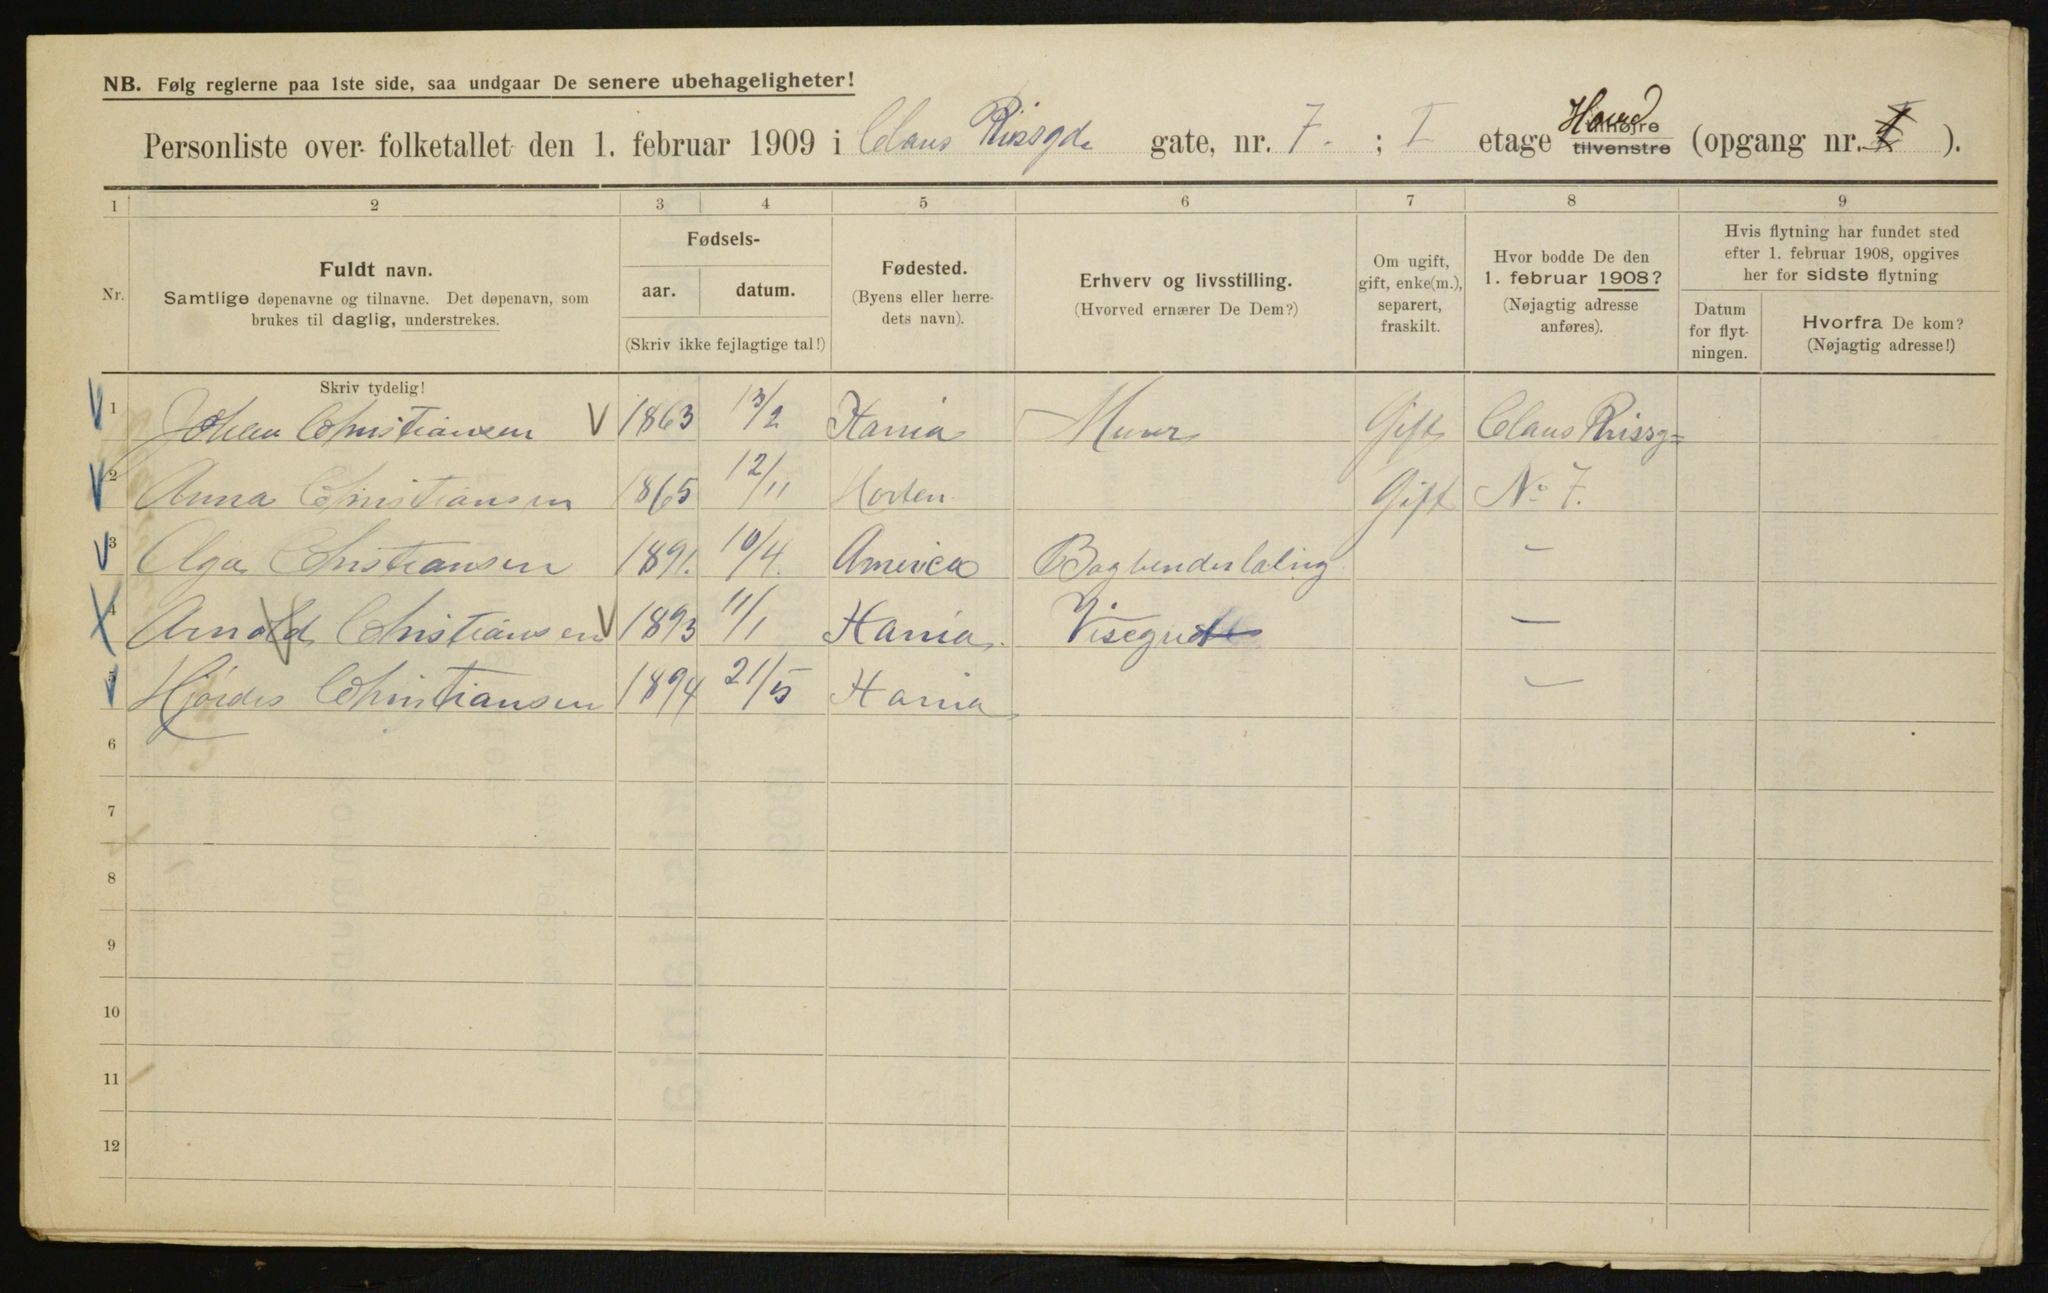 NB. Følg reglerne paa 1ste side, saa undgaar De senere ubehageligheter!
Personliste over folketallet den 1. februar 1909 i Claus Riisgde gate, nr. 7. ; I etage tilhøjre tilvenstre (opgang nr. ).
1 2 3 4 5 6 7 8 9
Nr.
Fuldt navn.
Samtlige døpenavne og tilnavne. Det døpenavn, som
brukes til daglig, understrekes.
Skriv tydelig!
Fødsels-
aar. datum.
(Skriv ikke fejlagtige tal!)
Fødested.
(Byens eller herre-
dets navn).
Erhverv og livsstilling.
(Hvorved ernærer De Dem?)
Om ugift,
gift, enke(m.),
separert,
fraskilt.
Hvor bodde De den
1. februar 1908?
(Nøjagtig adresse
anføres).
Hvis flytning har fundet sted
efter 1. februar 1908, opgives
her for sidste flytning
Datum
for flyt-
ningen.
Hvorfra De kom?
(Nøjagtig adresse!)
1 Johan Christiansen V 1863 13/2 Kania Murer Gift Claus Riissg=
2 Anna Christiansen 1865 12/11 Horten Gift No 7.
3 Olga Christiansen 1891. 10/4. America Bogbenderlæling —
4 Arnold Christiansen V 1893 11/1 Kania. Visegut —
5 Hjørdis Christiansen 1894 21/5 Kania —
6
7
8
9
10
11
12